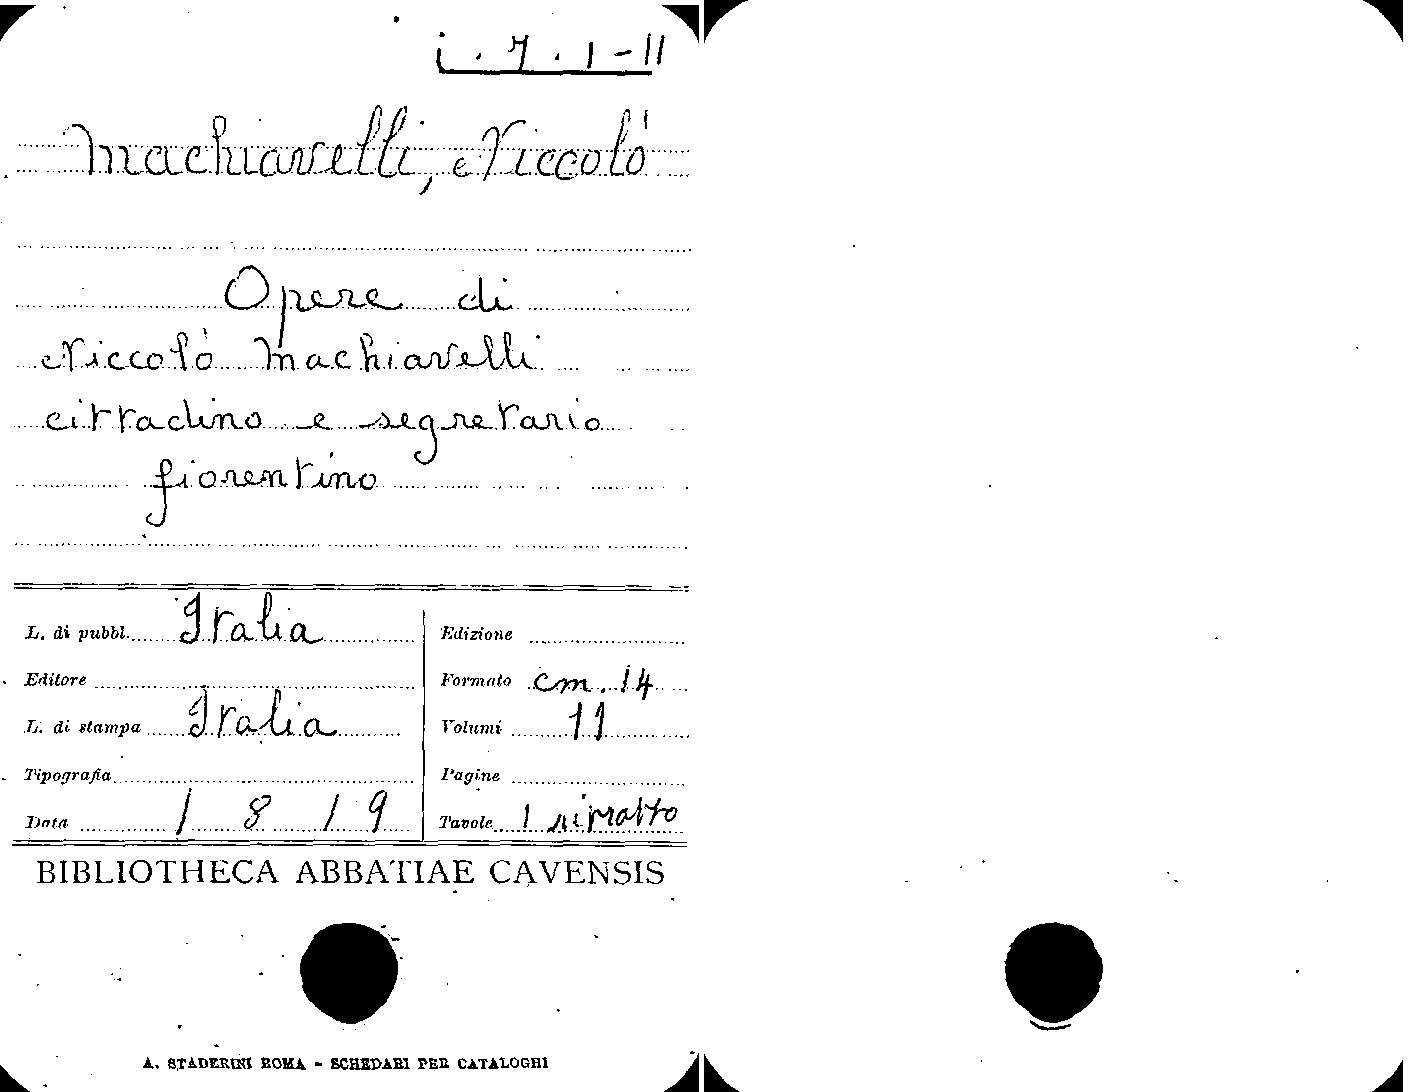 i. 7. 1-11
Machiavelli, Niccolò
Opere di
Niccolò Machiavelli
cittadino e segretario
fiorentino
L. di pubbl. Italia
Edizione
Editore
Formato cm. 14
L. di stampa Italia
Volumi 11
Tipografia
Pagine
Data 1819
Tavole 1 ritratto
BIBLIOTHECA ABBATIAE CAVENSIS
A. STADERINI ROMA - SCHEDARI PER CATALOGHI